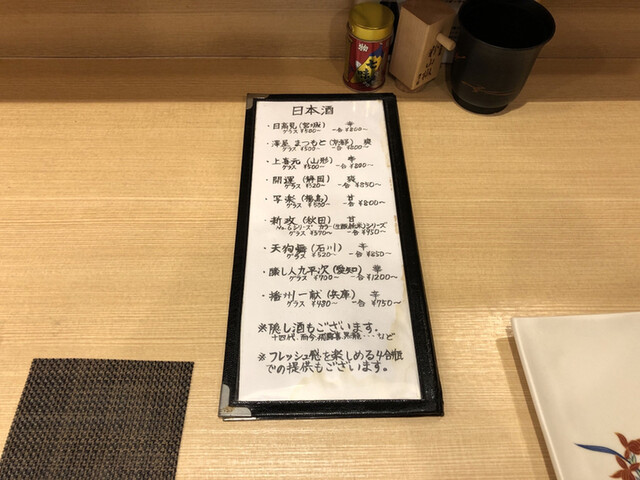 日本酒
・日高見(宮城) 辛
グラス ¥500~ 一合 ¥800~
・澤屋 まつもと(京都) 爽
グラス ¥500~ 一合 ¥800~
・上喜元(山形) 辛
グラス ¥500~ 一合 ¥800~
・開運(静岡) 爽
グラス ¥520~ 一合 ¥850~
・写楽(福島) 甘
グラス ¥500~ 一合 ¥800~
・新政(秋田) 甘
No.6シリーズ カラー(生酛純米)シリーズ
グラス ¥570~ 一合 ¥950~
・天狗舞(石川) 辛
グラス ¥520~ 一合 ¥850~
・醸し人九平次(愛知) 華
グラス ¥700~ 一合 ¥1200~
・播州一献(兵庫) 辛
グラス ¥480~ 一合 ¥750~
※隠し酒もございます。
十四代、而今、・・・など
※フレッシュ感を楽しめる4合瓶
での提供もございます。